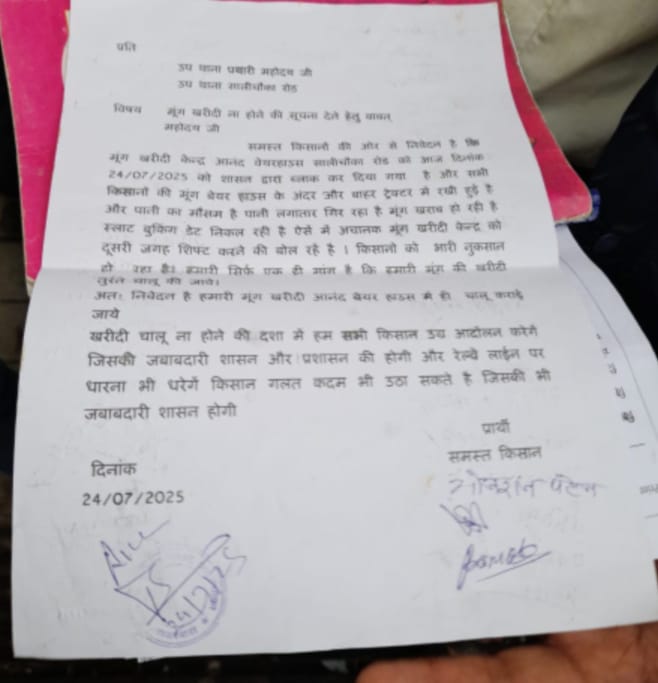 प्रति
उप थाना प्रभारी महोदय जी
उप थाना सालीचौका रोड
विषय मूंग खरीदी ना होने की सूचना देते हेतु बावत्
महोदय जी
समस्त किसानों की ओर से निवेदन है कि
मूंग खरीदी केन्द्र आनंद वेयरहाउस सालीचौका रोड को आज दिनांक
24/07/2025 को शासन द्वारा ब्लाक कर दिया गया है और सभी
किसानों की मूंग बेयर हाउस के अंदर और बाहर ट्रेक्टर में रखी हुई है
और पानी का मौसम है पानी लगातार गिर रहा है मूंग खराब हो रही है
स्लाट बुकिंग डेट निकल रही है ऐसे में अचानक मूंग खरीदी केन्द्र को
दूसरी जगह शिफ्ट करने की बोल रहे है । किसानो को भारी नुकसान
हो रहा है। हमारी सिर्फ एक ही मांग है कि हमारी मूंग की खरीदी
तुरंत चालू की जावे।
अतः निवेदन है हमारी मूंग खरीदी आनंद बेयर हाउस में ही चालू कराई
जाये
खरीदी चालू ना होने की दशा में हम सभी किसान उग्र आदोलन करेगें
जिसकी जबाबदारी शासन और प्रशासन की होगी और रेल्वे लाईन पर
धारना भी धरेगें किसान गलत कदम भी उठा सकते है जिसकी भी
जबाबदारी शासन होगी
प्रार्थी
समस्त किसान
दिनांक
24/07/2025
पटेल
24/7/25